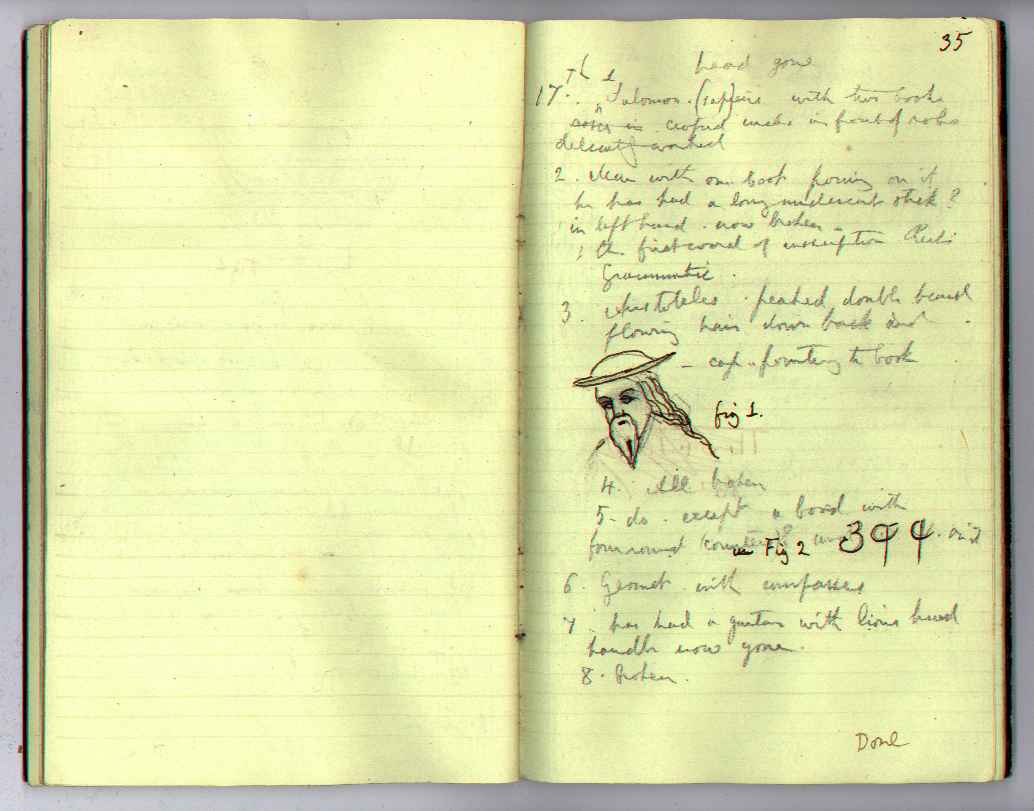 35
head gone
17th. 1 Salomon. (sapiens with two books
in front of robe
delicately worked
2. Man with one book poring on it
he has had a long stick?
in left hand. now broken -
first word of inscription
Grammatic.
3. Aristoteles. peaked, double beard
flowing hair down back and
- cap. pointing to book
fig 1.
4. All broken
5. do. except a board with
four round counters? and 399. on it
Fig 2
6. Geomet. with compasses
7. has had a guitar with lions head
handle now gone.
8. Broken.
Done